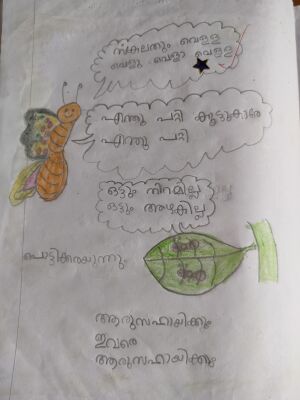 സകലതും വെള്ള
വെള്ള വെള്ള വെള്ള
എന്തു പറ്റി കൂട്ടുകാരേ
എന്തു പറ്റി
ഒട്ടും നിറമില്ല
ഒട്ടും അഴകില്ല
പൊട്ടിക്കരയുന്നു
ആരുസഹായിക്കും
ഇവരെ
ആരുസഹായിക്കും